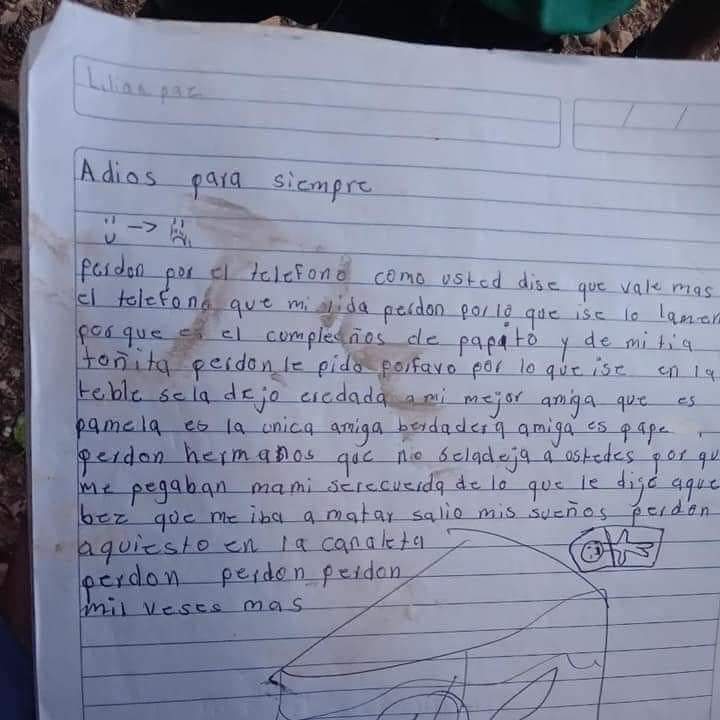 Lilian paz
Adios para siempre
perdon por el telefono como usted dise que vale mas
el telefono que mi vida perdon por lo que ise lo lamen
porque es el cumpleños de papito y de mi tia
toñita perdon le pido porfavo por lo que ise en la
teble sela dejo eredada a mi mejor amiga que es
pamela es la unica amiga berdadera amiga es pape
perdon hermanos que no seladeja a ostedes por qu
me pegaban mami serecuerda de lo que le dije aque
bez que me iba a matar salio mis sueños perdon
aquiesto en la canaleta
perdon perdon perdon
mil veses mas